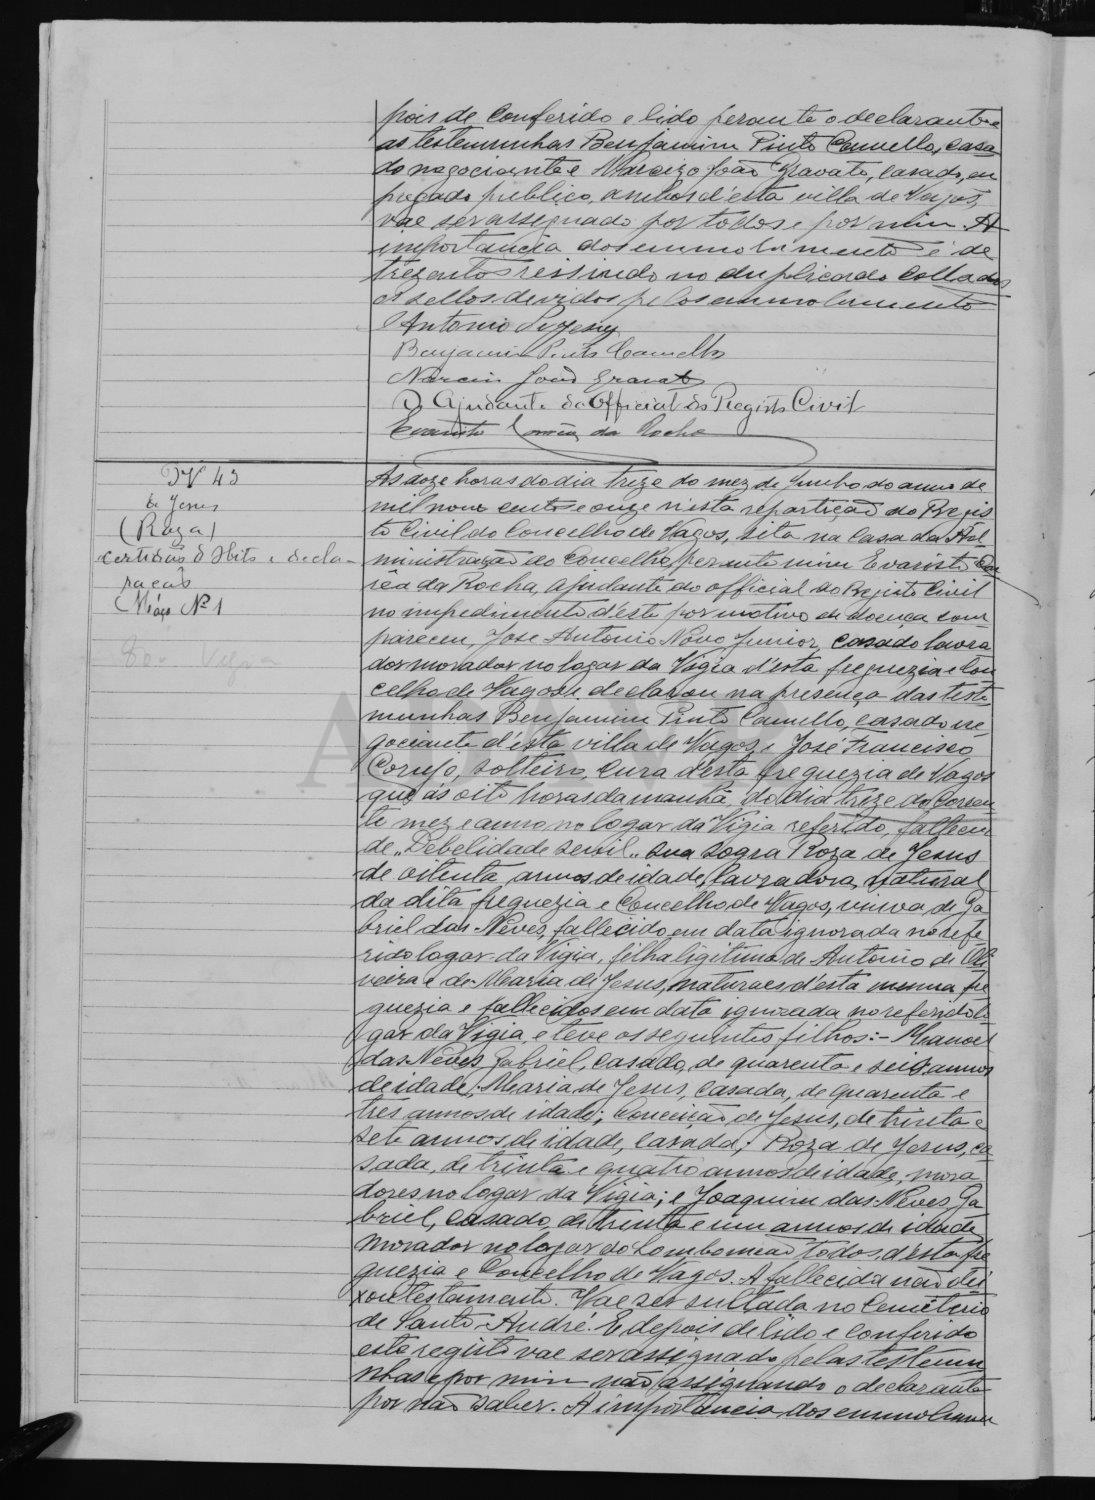 pois de conferido e lido perante o declarante e
as testemunhas Benjamim Pinto Camello, casa
do negociante e Narcizo João Gravato, casado, em
pregado publico, ambos d'esta villa de Vagos,
vae ser assegnado por todos e por mim. A
importancia dos emmolumento é de
trezentos reis indo no duplicado collados
os sellos devidos pelos emmolumento
Antonio
Benjamim Pinto Camello
Narciso João Gravato
O Ajudante do Official do Registo Civil
Evaristo Corrêa da Rocha
Nº 43
de Jesus
(Roza)
certidão d'obito e decla-
ração
Março Nº 1
As doze horas do dia treze do mez de Junho do anno de
mil nove cento e onze n'esta repartição do Regis
to Civil do Concelho de Vagos, sita na Casa da Ad
ministração do Concelho, perante mim Evaristo Cor
rêa da Rocha, ajudante do official do Registo Civil
no impedimento d'este por motivo de doença com
pareceu, José Antonio Novo Junior, casado lavra
dor morador no logar da Vigia d'esta freguezia e Con
celho de Vagos e declarou na presença das teste
munhas Benjamim Pinto Camello, casado ne
gociante d'esta villa de Vagos e José Francisco
Corujo, solteiro, cura d'esta freguezia de Vagos
que ás oito horas da manhã do dia treze do corren
te mez e anno no logar da Vigia referido, falleceu
de "Debelidade senil" sua sogra Roza de Jesus
de oitenta annos de idade, lavradora, natural
da dita freguezia e Concelho de Vagos, viuva de Ga
briel das Neves, fallecido em data ignorada no refe
rido logar da Vigia, filha ligitima de Antonio de Oli
veira e de Maria de Jesus, naturaes d'esta mesma fre
guezia e fallecidos em data ignorada no referido lo
gar da Vigia, e teve os seguintes filhos:- Manoel
das Neves Gabriel, casado, de quarenta e seis annos
de idade; Maria de Jesus, casada, de quarenta e
tres annos de idade; Conceição de Jesus, de trinta e
sete annos de idade, casada; Roza de Jesus, ca
sada, de trinta e quatro annos de idade, mora
dores no logar da Vigia; e Joaquim das Neves Ga
briel, casado, de trinta e um annos de idade
morador no logar do Lombomeão todos d'esta fre
guezia e Concelho de Vagos. A fallecida não dei
xou testamento. Vae ser sultada no Cemeterio
de Santo André. E depois de lido e conferido
este registo vae ser assignado pelas testemu
nhas e por mim não assignando o declarante
por não saber. A importancia dos emmolumen